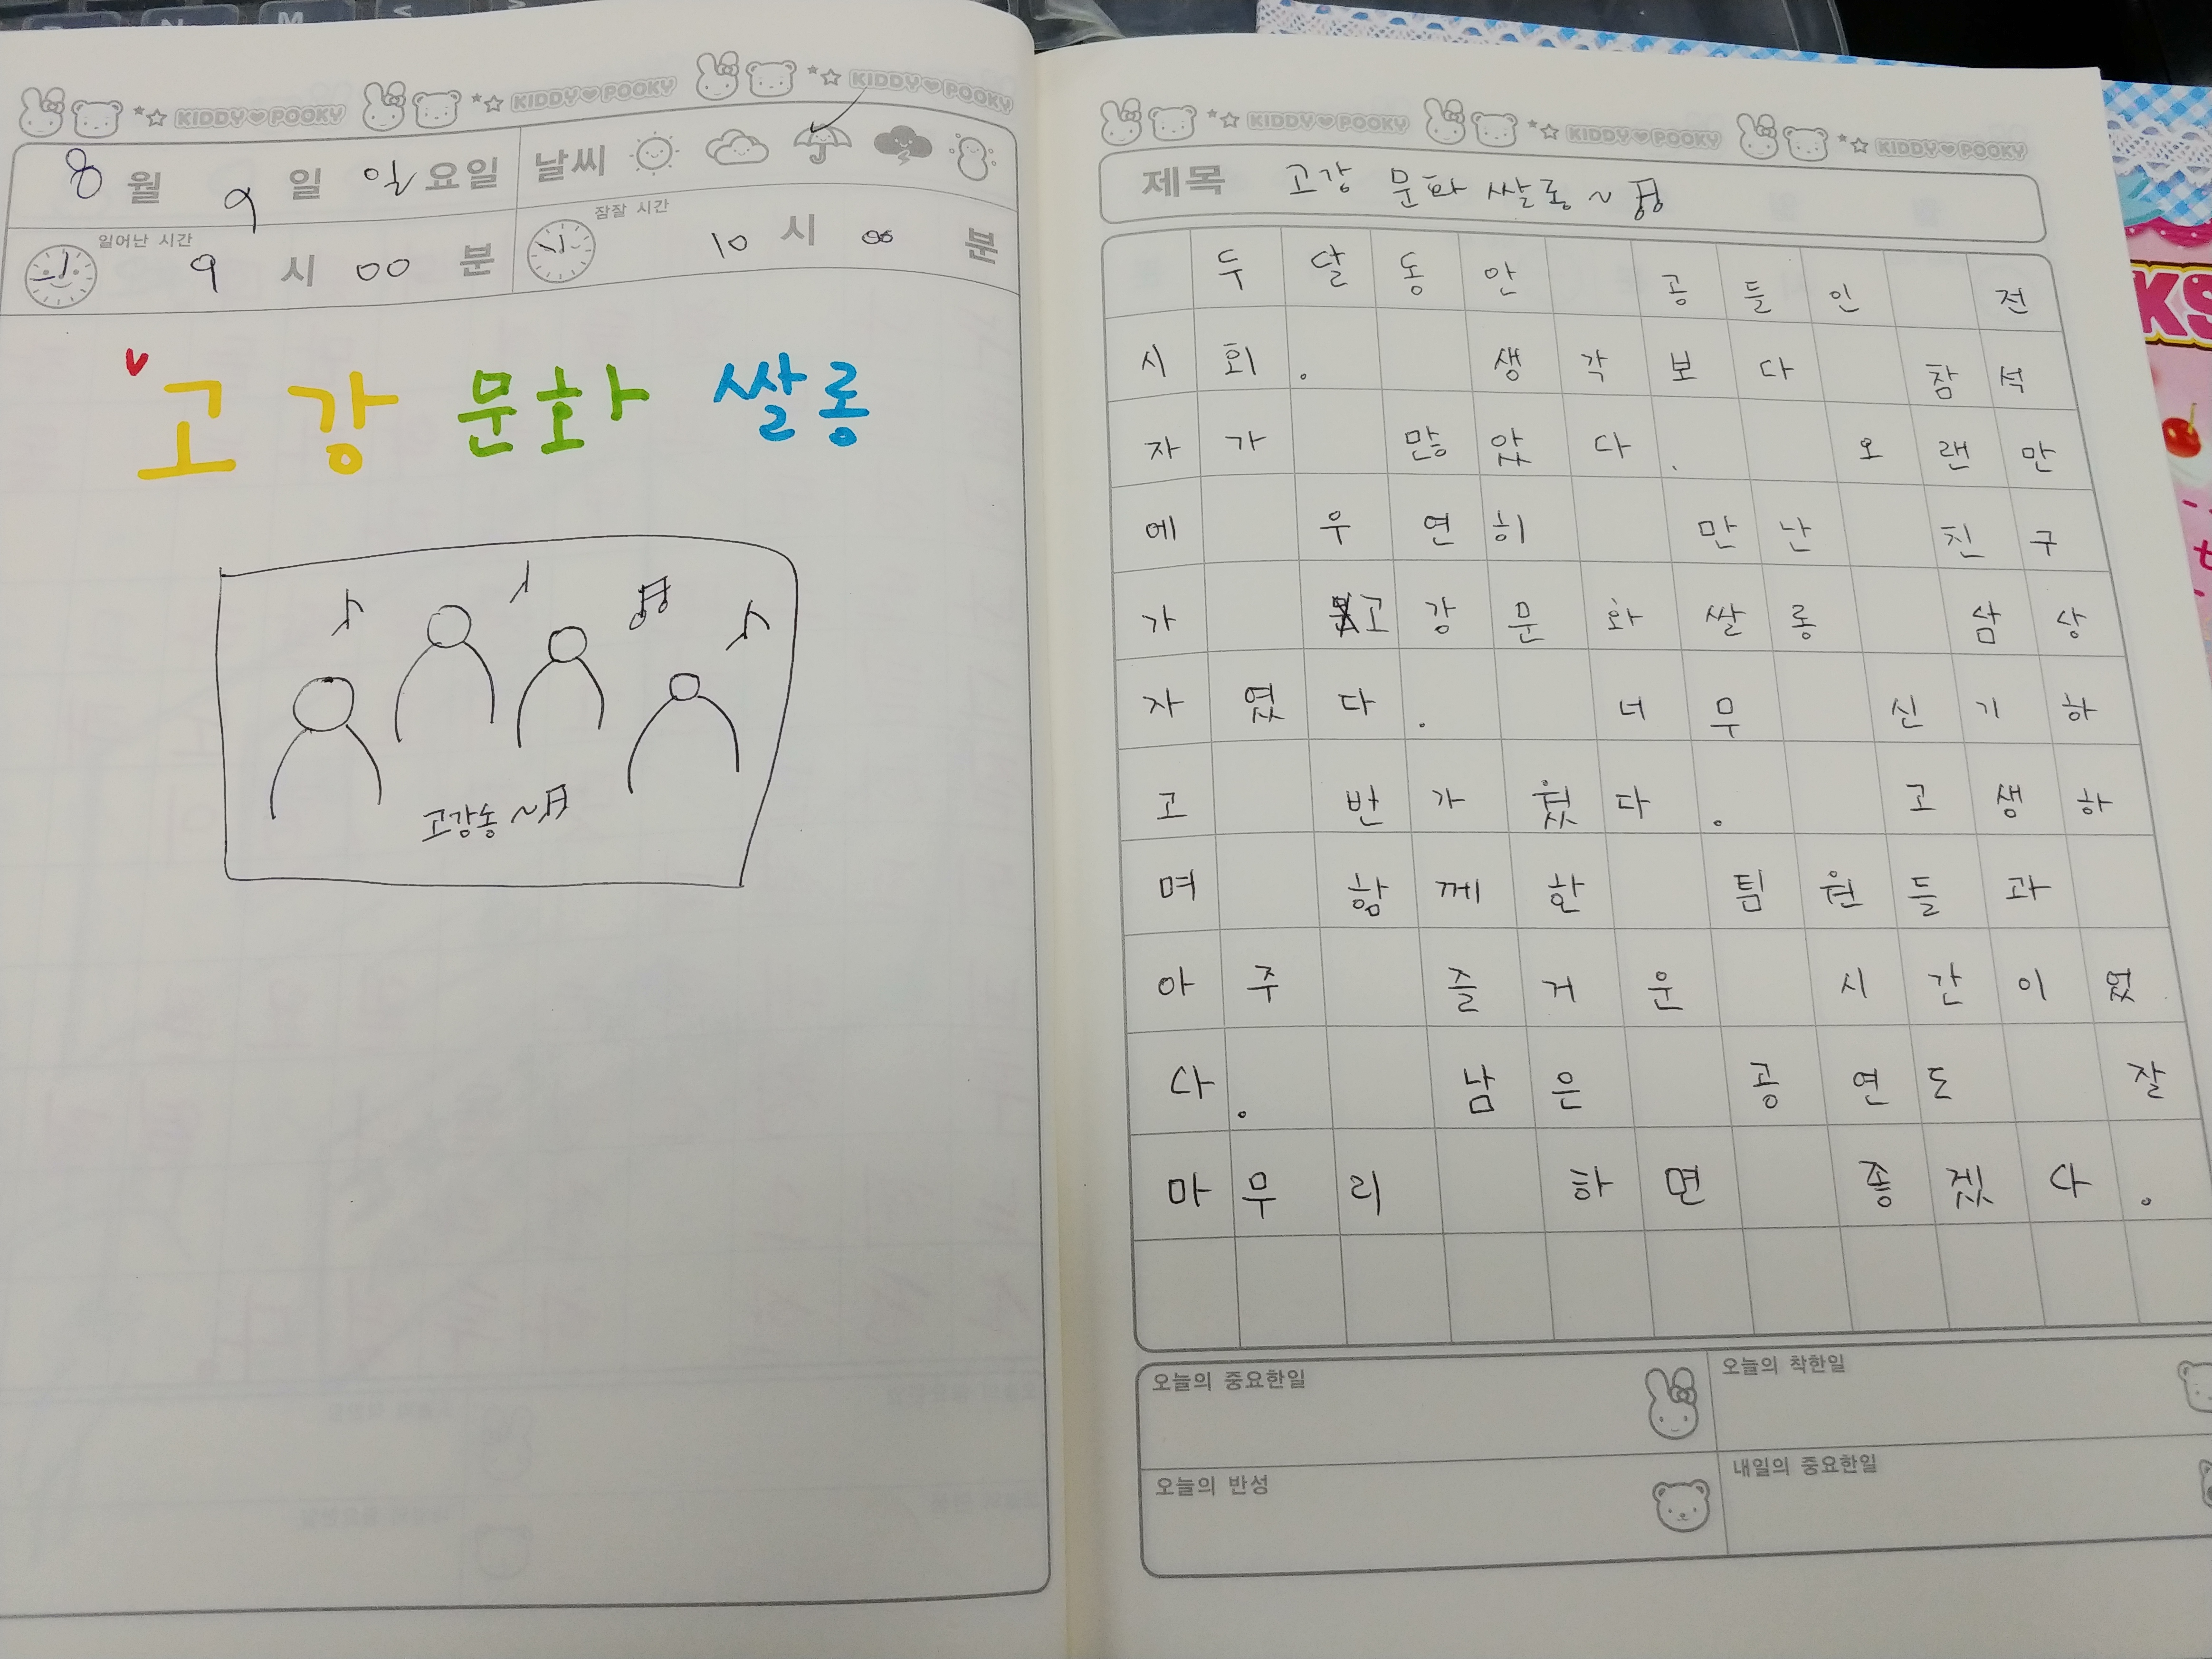 KIDDY♥POOKY KIDDY♥POOKY KIDDY♥POOKY
8월 9일 일요일 날씨
일어난 시간 9시 00분 잠잘 시간 10시 00분
고강 문화 쌀롱
고강송~
KIDDY♥POOKY KIDDY♥POOKY KIDDY♥POOKY
제목 고강 문화 쌀롱~
두달동안 공들인 전
시회. 생각보다 참석
자가 많았다. 오랜만
에 우연히 만난 친구
가 고강문화쌀롱 삼상
자였다. 너무 신기하
고 반가웠다. 고생하
며 함께한 팀원들과
아주 즐거운 시간이었
다. 남은 공연도 잘
마무리 하면 좋겠다.
오늘의 중요한일 오늘의 착한일
오늘의 반성 내일의 중요한일
KS